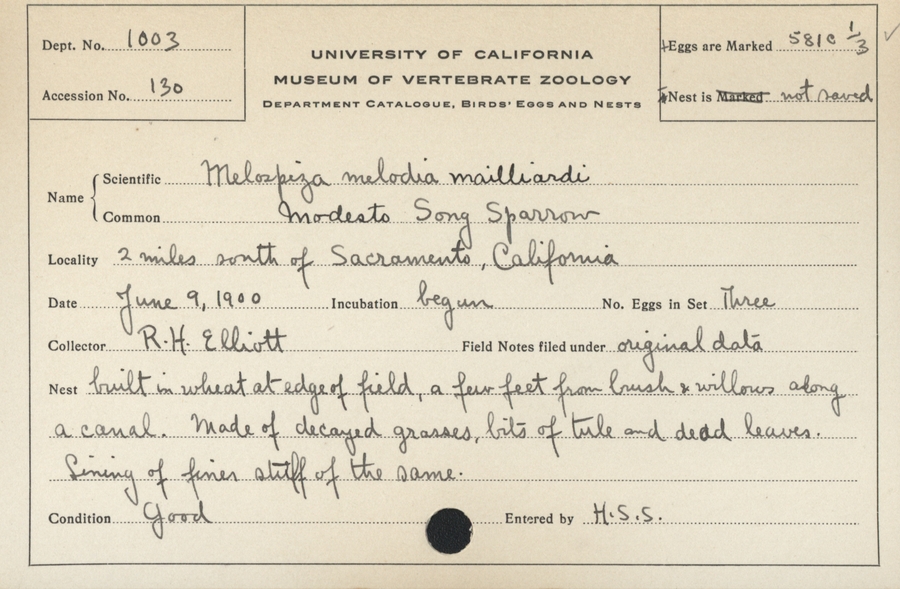 Dept. No. 1003
Accession No. 130
UNIVERSITY OF CALIFORNIA
MUSEUM OF VERTEBRATE ZOOLOGY
DEPARTMENT CATALOGUE, BIRDS' EGGS AND NESTS
Eggs are Marked 581c 1/3
Nest is Marked not saved
Name
Scientific Melospiza melodia mailliardi
Common Modesto Song Sparrow
Locality 2 miles south of Sacramento, California
Date June 9, 1900 Incubation begun No. Eggs in Set Three
Collector R.H. Elliott Field Notes filed under original data
Nest built in wheat at edge of field, a few feet from brush & willows along
a canal. Made of decayed grasses, bits of tule and dead leaves.
Lining of finer stuff of the same.
Condition Good Entered by H.S.S.